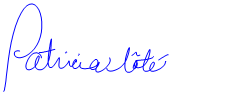 Patricia Côté